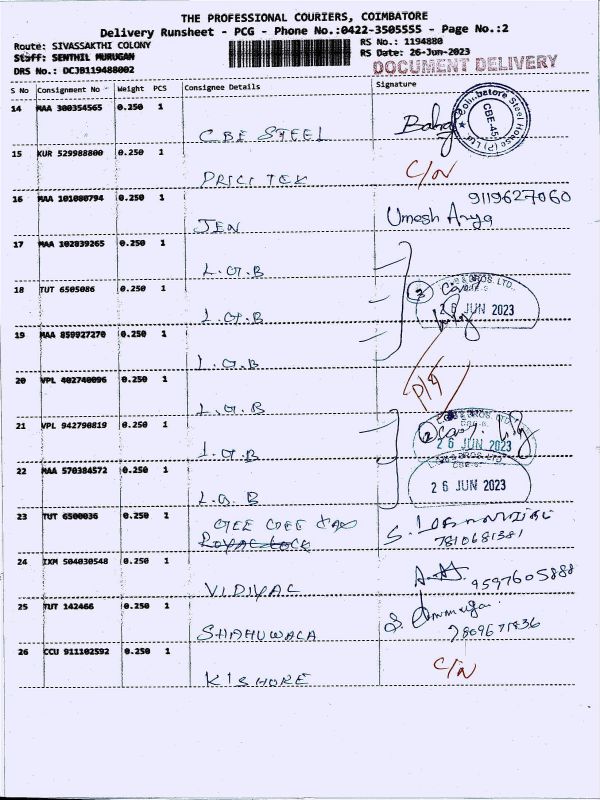 THE PROFESSIONAL COURIERS, COIMBATORE
Delivery Runsheet - PCG - Phone No.:0422-3505555 - Page No.:2
Route: SIVASSAKTHI COLONY
RS No.: 1194880
Staff: SENTHIL MURUGAN
RS Date: 26-Jun-2023
DRS No.: DCJB119488002
DOCUMENT DELIVERY
S No Consignment No Weight PCS Consignee Details Signature
14 MAA 300354565 0.250 1
CBE STEEL
Coimbatore Steel House (P) Ltd
CBE-45
15 KUR 529988800 0.250 1
PRICI TEK C/N
16 MAA 101080794 0.250 1
9119627060
JEN Umesh Arya
17 MAA 102839265 0.250 1
L.G.B
18 TUT 6505086 0.250 1
L.G.B
3
BROS. LTD.
26 JUN 2023
19 MAA 859927270 0.250 1
L.G.B
20 VPL 402740096 0.250 1
L.G.B
21 VPL 942790819 0.250 1
L.G.B
2
26 JUN 2023
22 MAA 570384572 0.250 1
L.G.B
BROS. LTD.
26 JUN 2023
23 TUT 6500036 0.250 1
GEE GEE
7810681381
24 IXM 504030548 0.250 1
VIDIYAL
9597605888
25 TUT 142466 0.250 1
SHAHUWALA
26 CCU 911102592 0.250 1
KISHORE C/N